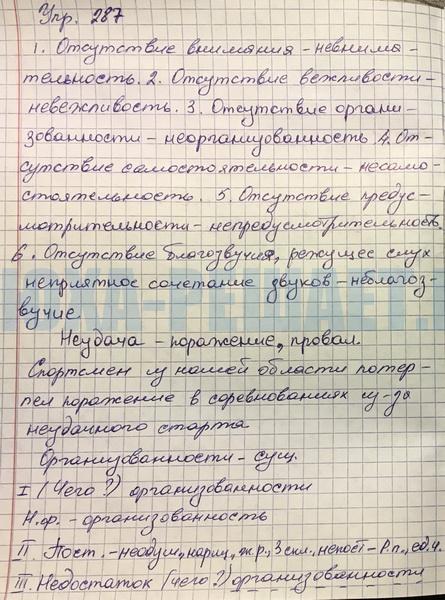 Упр. 287
1. Отсутствие внимания – невнима-
тельность. 2. Отсутствие вежливости –
невежливость. 3. Отсутствие органи-
зованности – неорганизованность. 4. От-
сутствие самостоятельности – несамо-
стоятельность. 5. Отсутствие предус-
мотрительности – непредусмотрительность.
6. Отсутствие благозвучия, режущее слух
неприятное сочетание звуков – неблагоз-
вучие.
Неудача – поражение, провал.
Спортсмен из нашей области потер-
пел поражение в соревнованиях из-за
неудачного старта
Организованности – сущ.
I (Чего?) организованности
Н.ф. – организованность
II. Пост. – неодуш., нариц., ж.р., 3 скл., непост – Р.п., ед.ч.
III. Недостаток (чего?) организованности